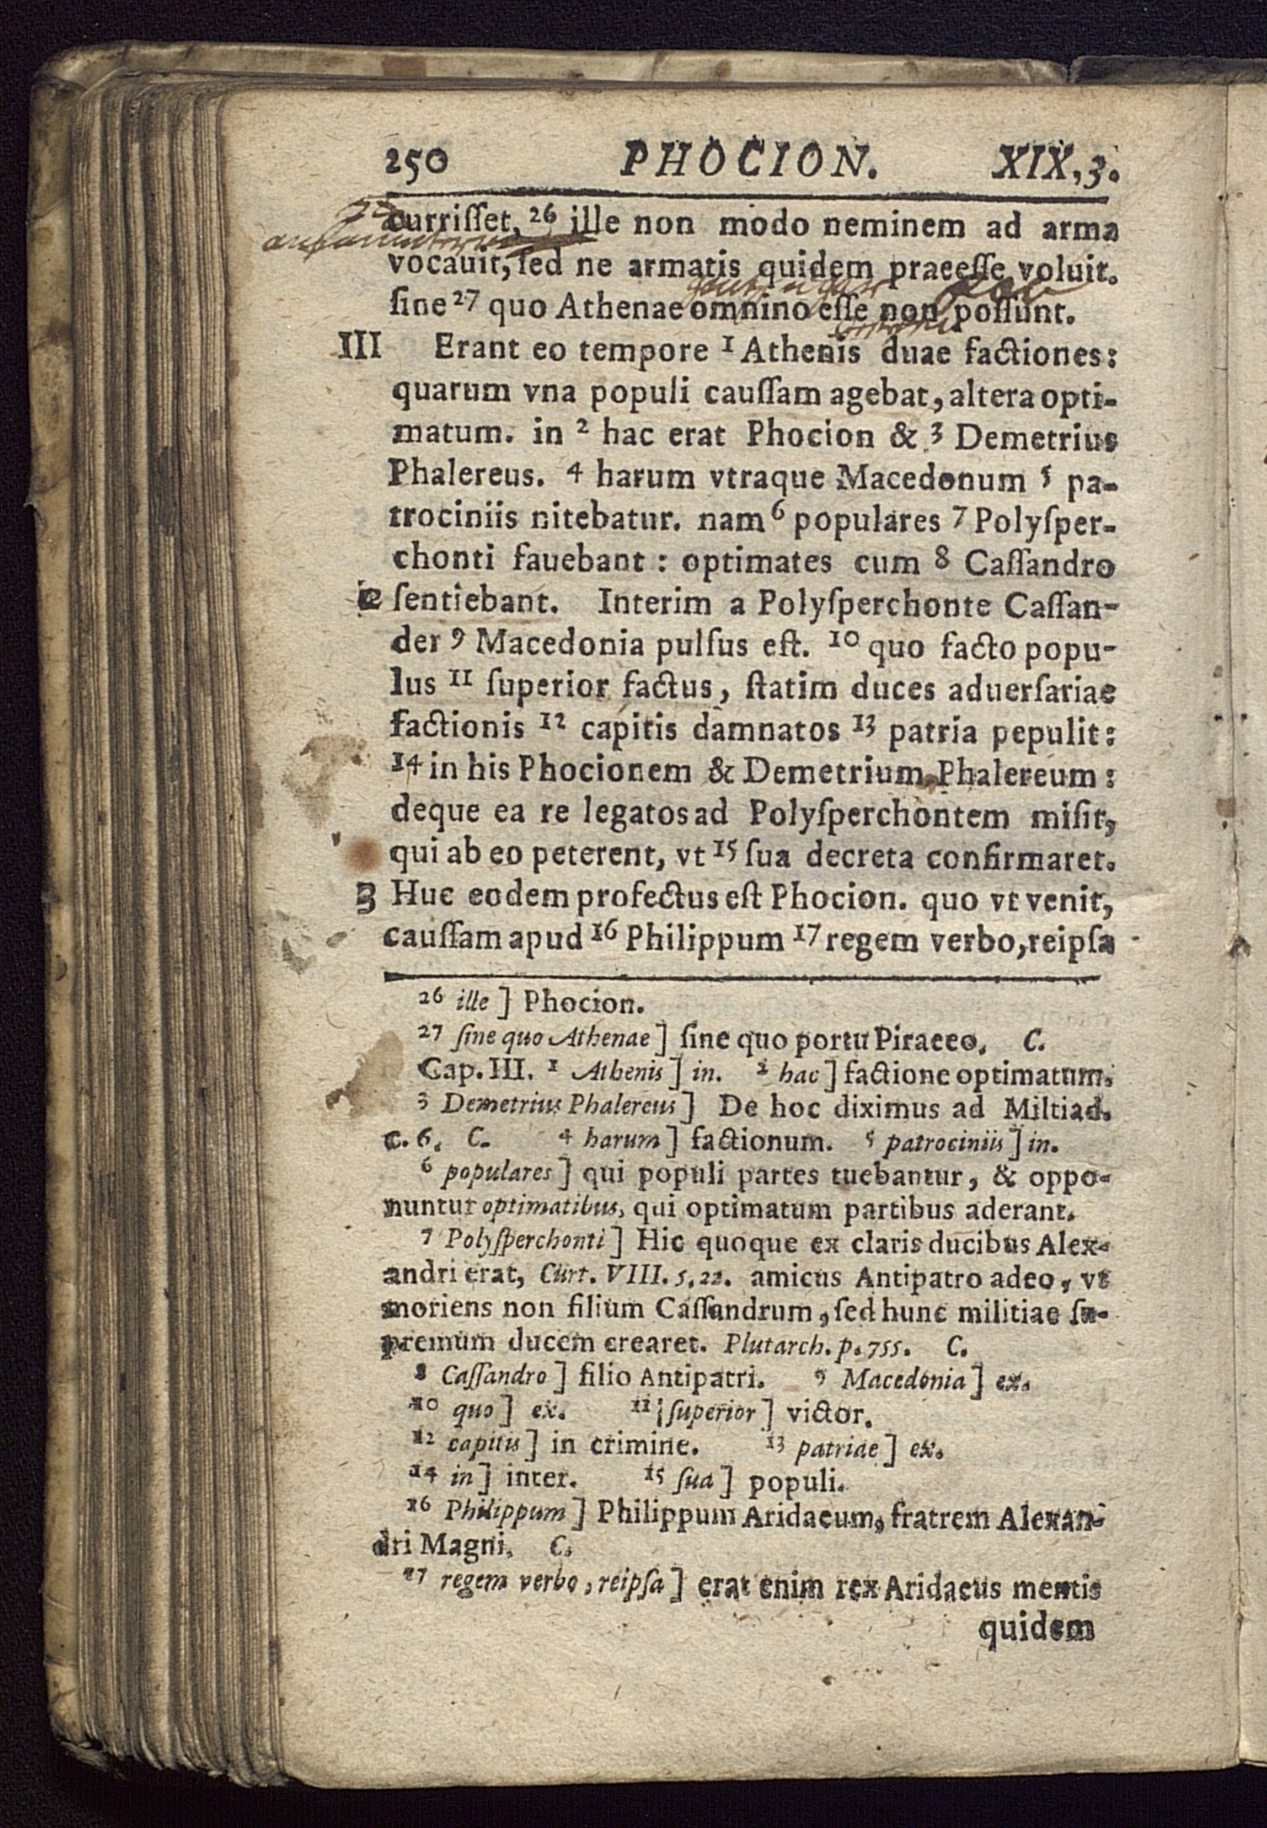 250 PHOCION. XIX, 3.
curriſſet, 26 ille non modo neminem ad arma
vocauit, ſed ne armatis quidem praeeſſe voluit.
ſine 27 quo Athenae omnino eſſe non poſſunt.
III Erant eo tempore 1 Athenis duae factiones:
quarum vna populi cauſſam agebat, altera opti-
matum. in 2 hac erat Phocion & 3 Demetrius
Phalereus. 4 harum vtraque Macedonum 5 pa-
trociniis nitebatur. nam 6 populares 7 Polyſper-
chonti fauebant: optimates cum 8 Caſſandro
2 ſentiebant. Interim a Polyſperchonte Caſſan-
der 9 Macedonia pulſus eſt. 10 quo facto popu-
lus 11 ſuperior factus, ſtatim duces aduerſariae
factionis 12 capitis damnatos 13 patria pepulit:
14 in his Phocionem & Demetrium Phalereum:
deque ea re legatos ad Polyſperchontem miſit,
qui ab eo peterent, vt 15 ſua decreta confirmaret.
3 Huc eodem profectus eſt Phocion. quo vt venit,
cauſſam apud 16 Philippum 17 regem verbo, reipſa
26 ille] Phocion.
27 ſine quo Athenae] ſine quo portu Piraeeo. C.
Cap. III. 1 Athenis] in. 2 hac] factione optimatum.
3 Demetrius Phalereus] De hoc diximus ad Miltiad.
c. 6. C. 4 harum] factionum. 5 patrociniis] in.
6 populares] qui populi partes tuebantur, & oppo-
nuntur optimatibus, qui optimatum partibus aderant.
7 Polyſperchonti] Hic quoque ex claris ducibus Alex-
andri erat, Curt. VIII. 5, 22. amicus Antipatro adeo, vt
moriens non filium Caſſandrum, ſed hunc militiae ſu-
premum ducem crearet. Plutarch. p. 755. C.
8 Caſſandro] filio Antipatri. 9 Macedonia] ex.
10 quo] ex. 11 ſuperior] victor.
12 capitis] in crimine. 13 patriae] ex.
14 in] inter. 15 ſua] populi.
16 Philippum] Philippum Aridaeum, fratrem Alexan-
dri Magni. C.
17 regem verbo, reipſa] erat enim rex Aridaeus mentis
quidem